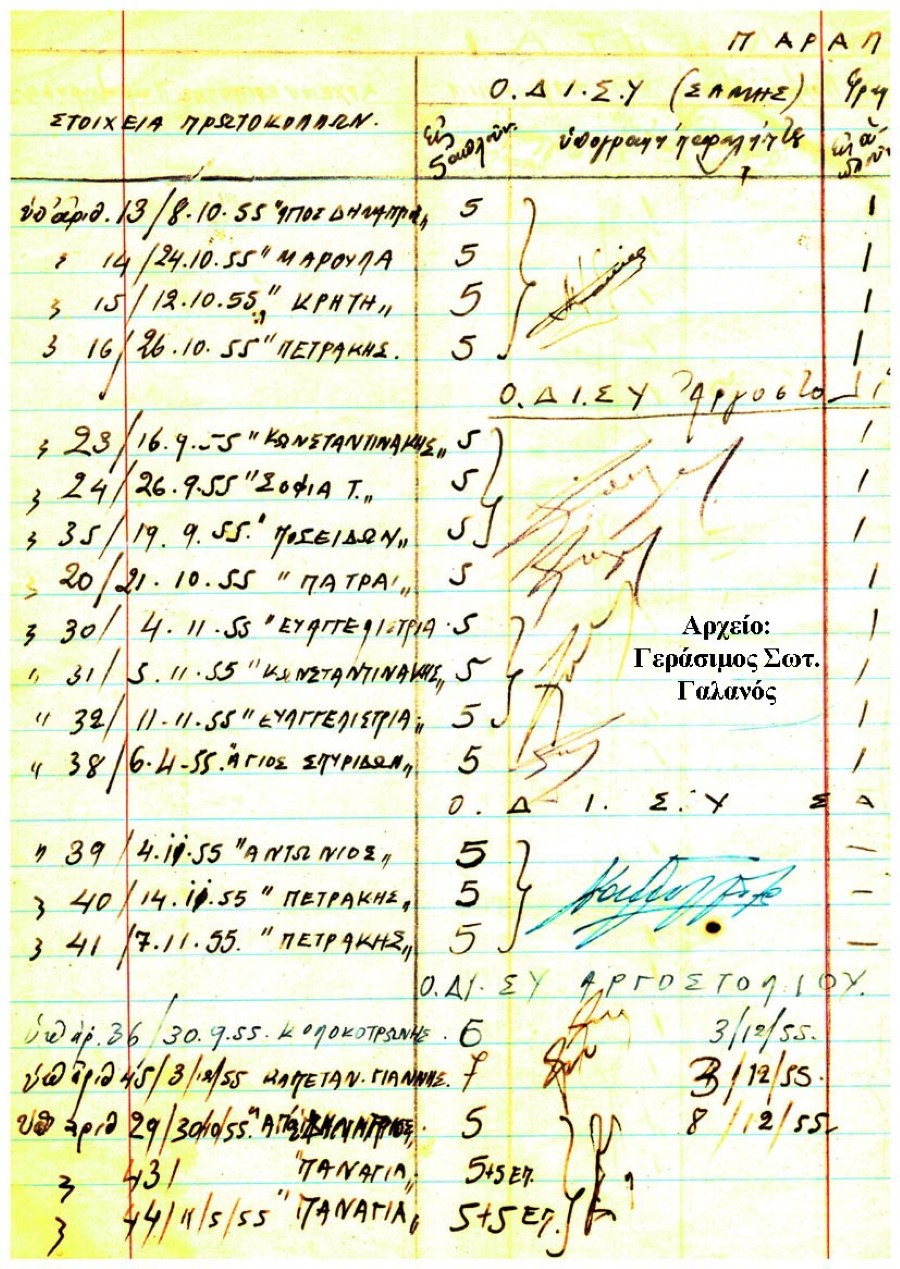 Π Α Ρ Α Π
Ο. Δ Ι. Σ. Υ (ΣΑΜΗΣ)
ΣΤΟΙΧΕΙΑ ΠΡΩΤΟΚΟΛΛΩΝ.
Εἰς ὑπογραφή
ὑπ' ἀριθ. 13/8-10-55 5 1
" 14/24.10.55 "ΜΑΡΟΥΛΑ 5 1
" 15/12.10.55 " ΚΡΗΤΗ" 5 1
" 16/26.10.55 "ΠΕΤΡΑΚΗΣ. 5 1
Ο. Δ. Ι. Σ Υ Ἀργοστολί
" 23/16.9.55 "ΚΩΝΣΤΑΝΤΙΝΑΚΗΣ" 5 1
" 24/26.9.55 "ΣΟΦΙΑ Τ." 5 1
" 35/19.9.55." ΠΟΣΕΙΔΩΝ" 5 1
" 20/21.10.55 "ΠΑΤΡΑΙ" 5 1
" 30/4.11.55 "ΕΥΑΓΓΕΛΙΣΤΡΙΑ 5 1
Αρχείο:
Γεράσιμος Σωτ.
Γαλανός
" 31/5.11.55 "ΚΩΝΣΤΑΝΤΙΝΑΚΗΣ" 5
" 32/11.11.55 "ΕΥΑΓΓΕΛΙΣΤΡΙΑ" 5 1
" 38/6-4-55. "ΑΓΙΟΣ ΣΠΥΡΙΔΩΝ" 5 1
Ο. Δ - Ι. Σ. Υ Σ Α
" 39/4.11.55 "ΑΝΤΩΝΙΟΣ" 5 -
" 40/14.11.55 "ΠΕΤΡΑΚΗΣ" 5 -
" 41/7.11.55. "ΠΕΤΡΑΚΗΣ" 5 -
Ο. ΔΙ. ΣΥ ΑΡΓΟΣΤΟΛΙΟΥ.
ὑπ' ἀρ. 36/30.9.55. ΚΟΛΟΚΟΤΡΩΝΗΣ. 6 3/12/55.
ὑπ' ἀριθ 45/3/12/55 ΚΑΠΕΤΑΝ. ΓΙΑΝΝΗΣ. 7 3/12/55.
ὑπ' ἀριθ 29/30/10/55. 5 8/12/55
" 43/ "ΠΑΝΑΓΙΑ" 5+5 ΕΠ.
" 44/11/5/55 "ΠΑΝΑΓΙΑ" 5+5 ΕΠ.